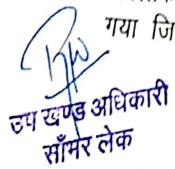 गया जि
उप खण्ड अधिकारी
साँभर लेक